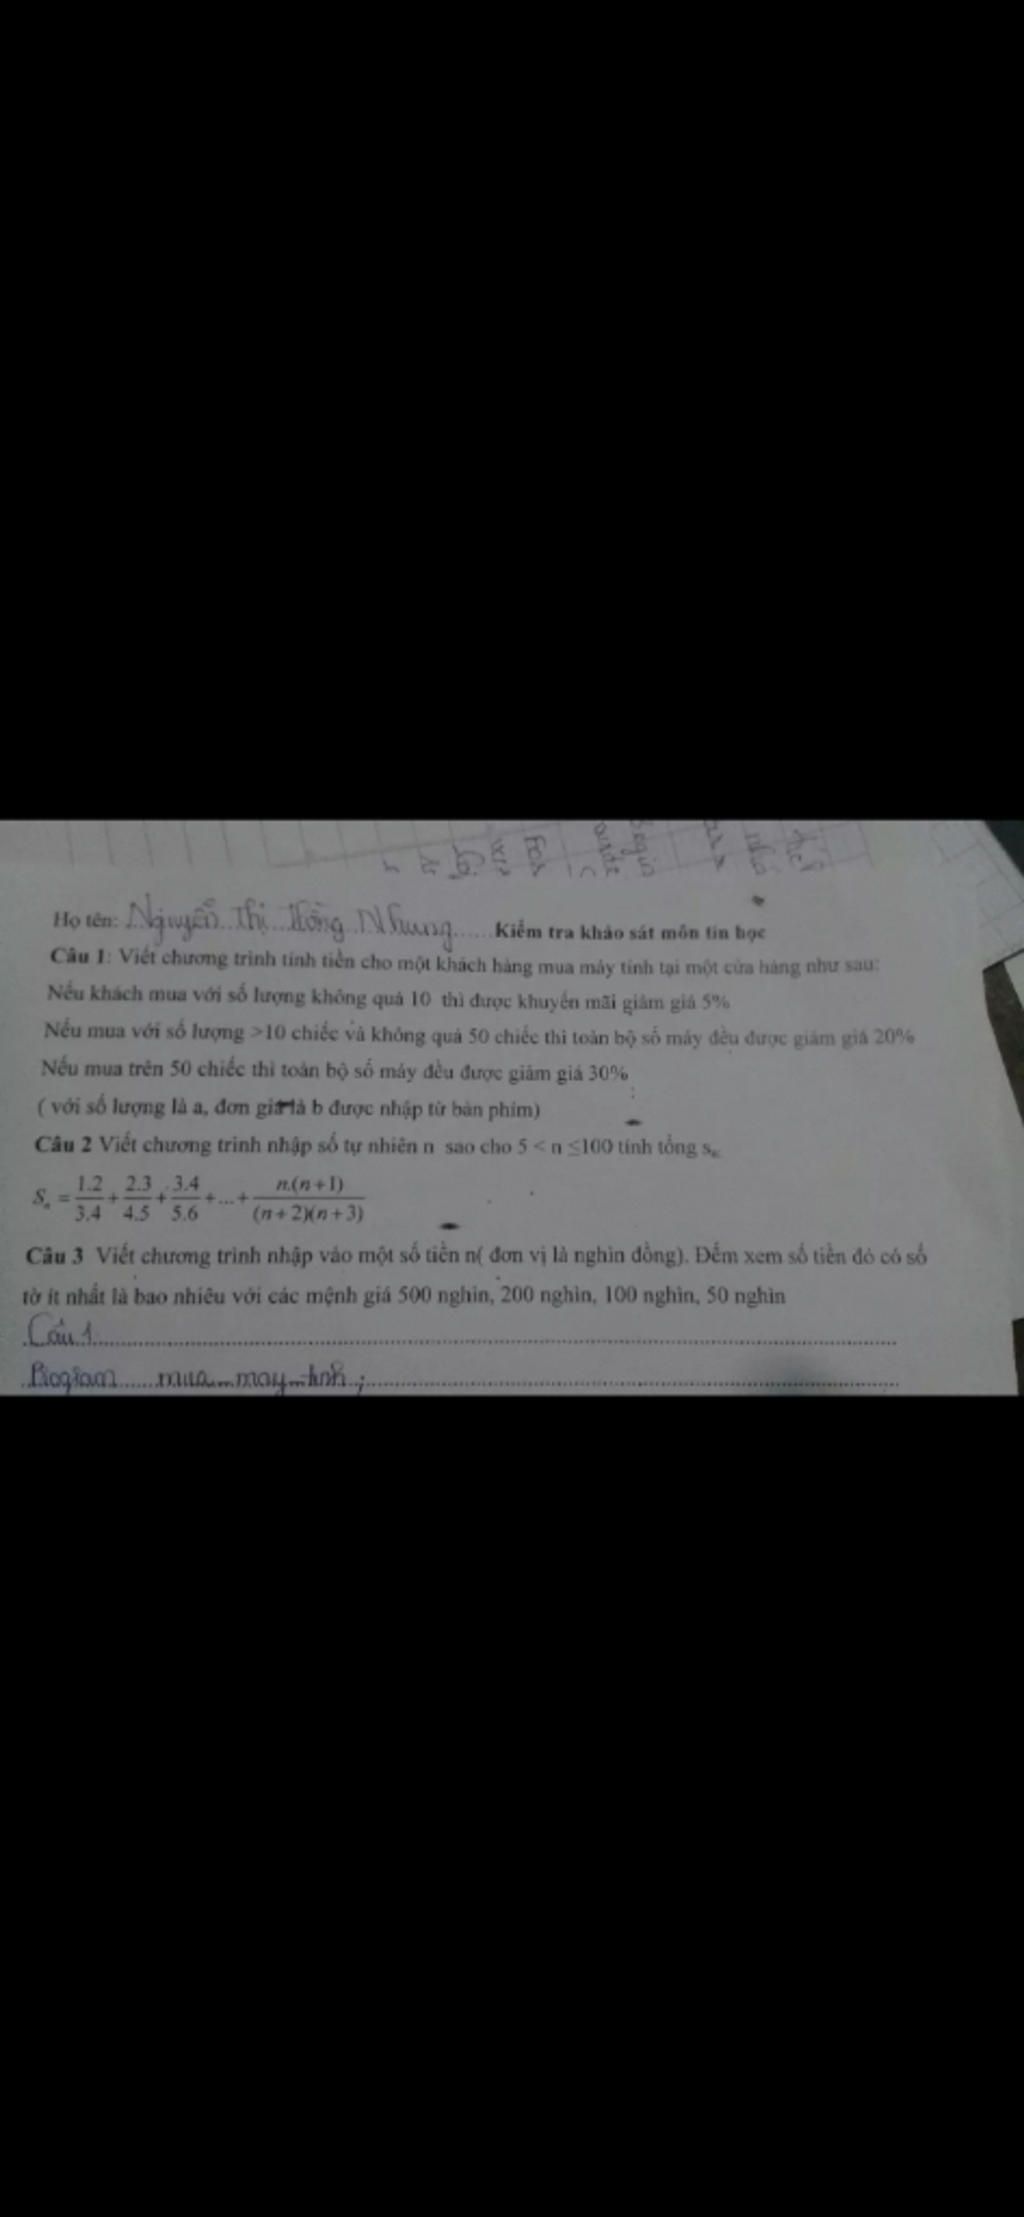 Họ tên: Nguyễn Thị Hồng Nhung Kiểm tra khảo sát môn tin học
Câu 1: Viết chương trình tính tiền cho một khách hàng mua máy tính tại một cửa hàng như sau:
Nếu khách mua với số lượng không quá 10 thì được khuyến mãi giảm giá 5%
Nếu mua với số lượng >10 chiếc và không quá 50 chiếc thì toàn bộ số máy đều được giảm giá 20%
Nếu mua trên 50 chiếc thì toàn bộ số máy đều được giảm giá 30%
( với số lượng là a, đơn giá là b được nhập từ bàn phím)
Câu 2 Viết chương trình nhập số tự nhiên n sao cho 5 < n ≤100 tính tổng sₙ
Sₙ = 1.2/3.4 + 2.3/4.5 + 3.4/5.6 + ... + n.(n+1)/(n+2)(n+3)
Câu 3 Viết chương trình nhập vào một số tiền n( đơn vị là nghìn đồng). Đếm xem số tiền đó có số
tờ ít nhất là bao nhiêu với các mệnh giá 500 nghìn, 200 nghìn, 100 nghìn, 50 nghìn
Câu 1
Program mua_may_tinh ;